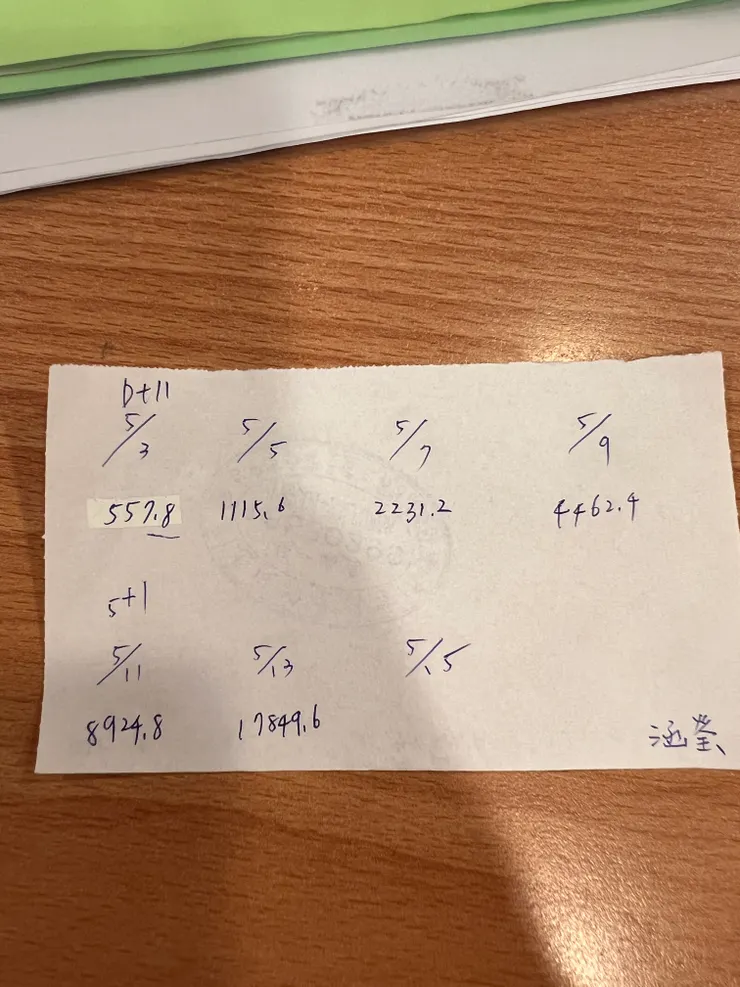 D+11
5/3 5/5 5/7 5/9
557.8 1115.6 2231.2 4462.4
5+1
5/11 5/13 5/15
8924.8 17849.6
涵瑩